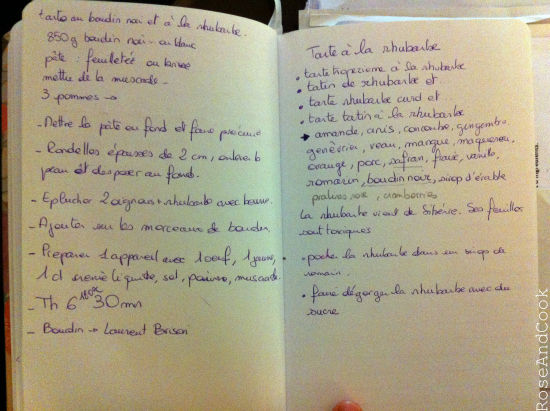 tarte au boudin noir et à la rhubarbe.
850g boudin noir - ou blanc
pâte : feuilletée ou brisée
mettre de la muscade -
3 pommes →
- Mettre la pâte au fond et faire précuire
- Rondelles épaisses de 2 cm, enlever la
peau et disposer au fond.
- Eplucher 2 oignons + rhubarbe avec beurre.
- Ajouter sur les morceaux de boudin.
- Préparer 1 appareil avec 1 oeuf, 1 jaune,
1 dl crème liquide, sel, poivre, muscade.
- Th 6 180°C 30 mn
- Boudin → Laurent Brison
Tarte à la rhubarbe
• tarte tropezienne à la rhubarbe
• tatin de rhubarbe et
• tarte rhubarbe curd et
• tarte tatin à la rhubarbe
→ amande, anis, concombre, gingembre,
genévrier, veau, mangue, maquereau,
orange, porc, safran, fraise, vanille,
romarin, boudin noir, sirop d'érable
pralines rose, cranberries
La rhubarbe vient de Sibérie. Ses feuilles
sont toxiques
• pocher la rhubarbe dans un sirop de
romarin.
• faire dégorger la rhubarbe avec du
sucre
RoseAndCook